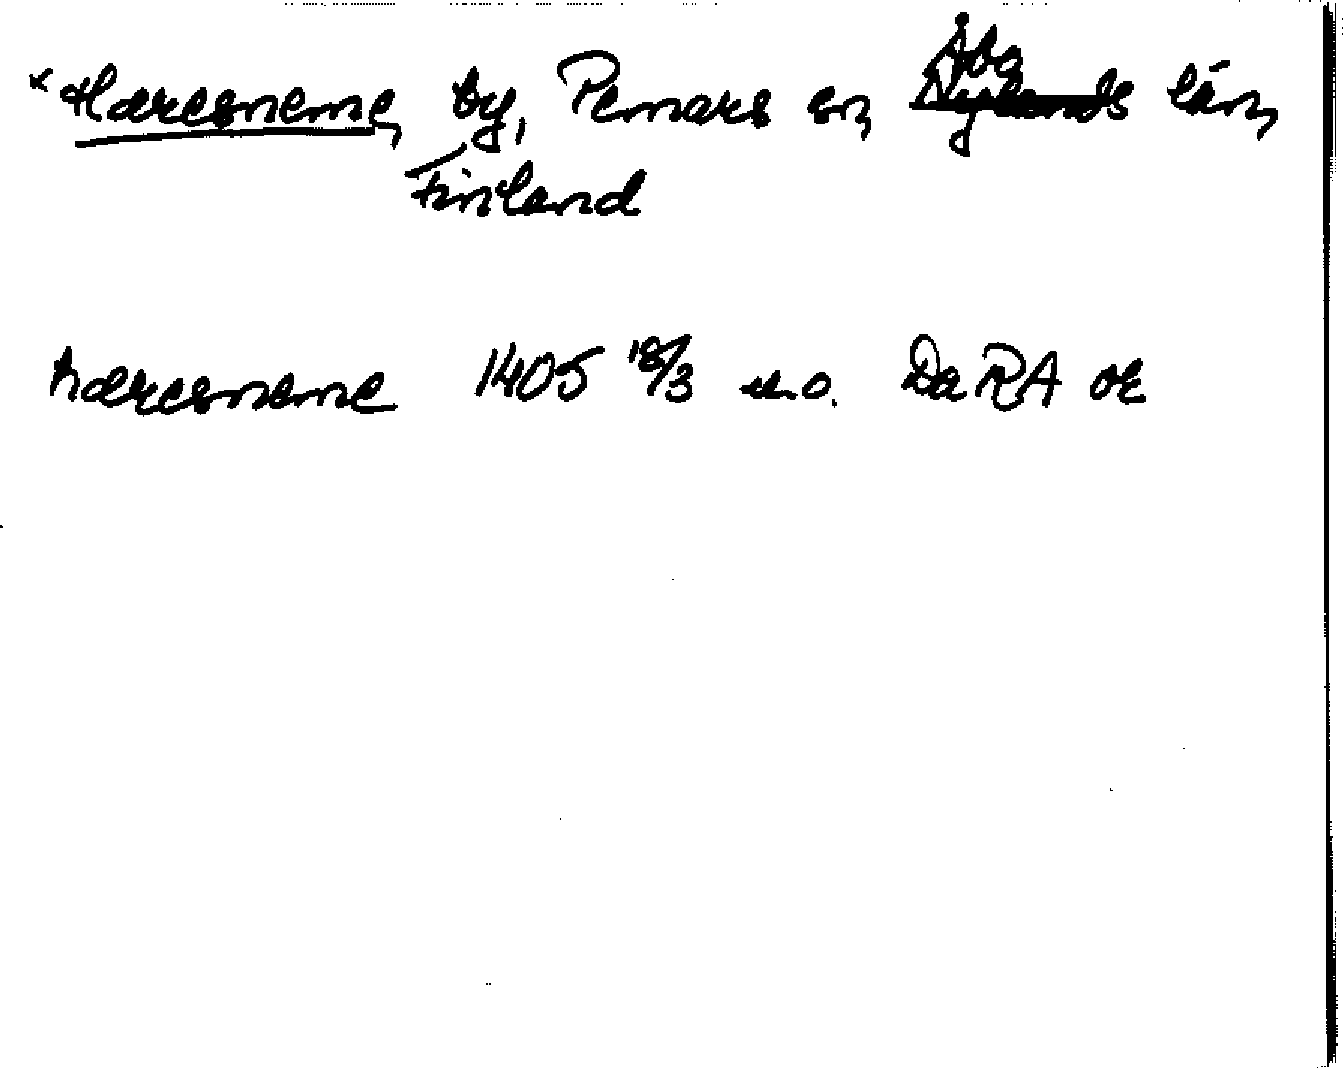 * Harcesneme, by, Pemars sn, Åbo ~~Nylands~~ län,
Finland
harcesneme 1405 18/3 u.o. DaRA or